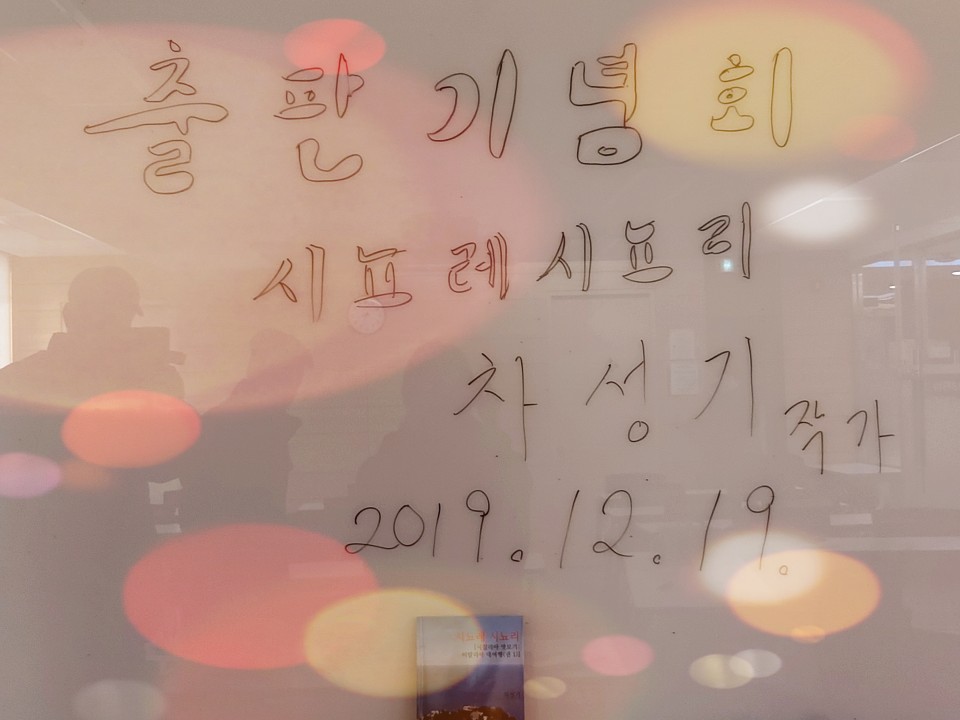 출판기념회
시뇨레시뇨리
차성기 작가
2019. 12. 19.
시뇨레 시뇨리